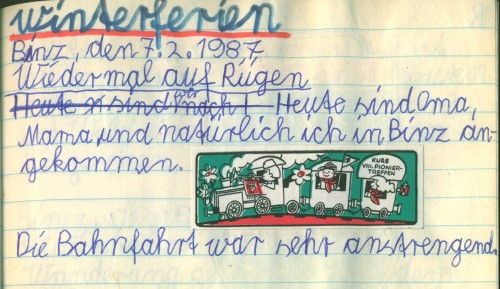 Winterferien
Binz, den 7.2.1987
Wiedermal auf Rügen
Heute sind wir nach Heute sind Oma,
Mama, und natürlich ich in Binz an-
gekommen.
KURS
VIII. PIONIER-
TREFFEN
Die Bahnfahrt war sehr anstrengend.